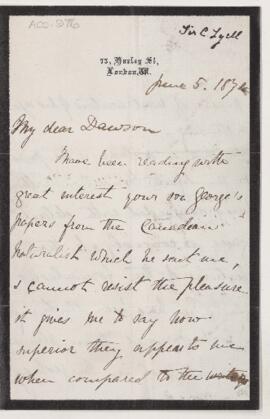 Acc-976
Sir C Lyell
73, Harley St,
London, W.
June 5. 1874
My dear Dawson
I have been reading with
great interest your son George's
papers from the Canadian
Naturalist which he sent me,
& cannot resist the pleasure
it gives me to say how
superior they appear to me
when compared to the